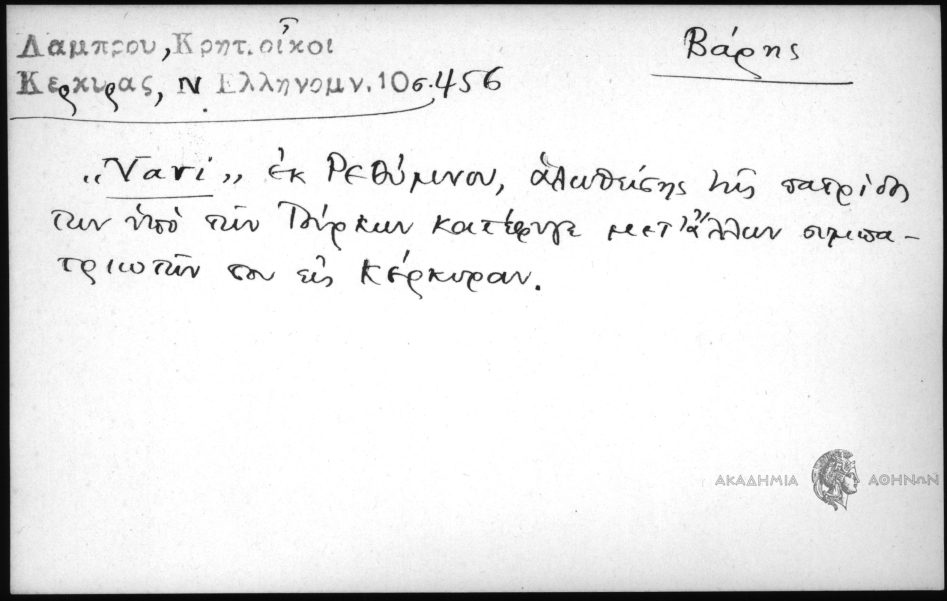 Λαμπρου, Κρητ. οἶκοι
Κερκυρας, Ν Ελληνομν. 10 σ. 456
Βάρης
„Vari„ ἐκ Ρεθύμνου, ἁλωθείσης τῆς πατρίδος
των ὑπὸ τῶν Τούρκων κατέφυγε μετ' ἄλλων συμπα-
τριωτῶν του εἰς Κέρκυραν.
ΑΚΑΔΗΜΙΑ ΑΘΗΝΩΝ